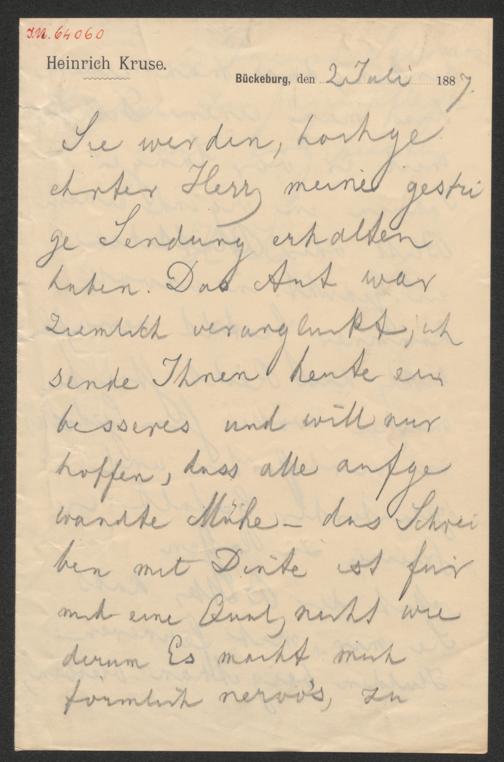 I.N. 64060
Heinrich Kruse.
Bückeburg, den 2 Juli 1887.
Sie werden, hochge
ehrter Herr, meine gestri
ge Sendung erhalten
haben. Das Aut war
ziemlich verunglückt; ich
sende Ihnen heute ein
besseres und will nur
hoffen, dass alle aufge
wandte Mühe – das Schrei
ben mit Dinte ist für
mich eine Qual, nicht wie
derum Es macht mich
förmlich nervös, zu